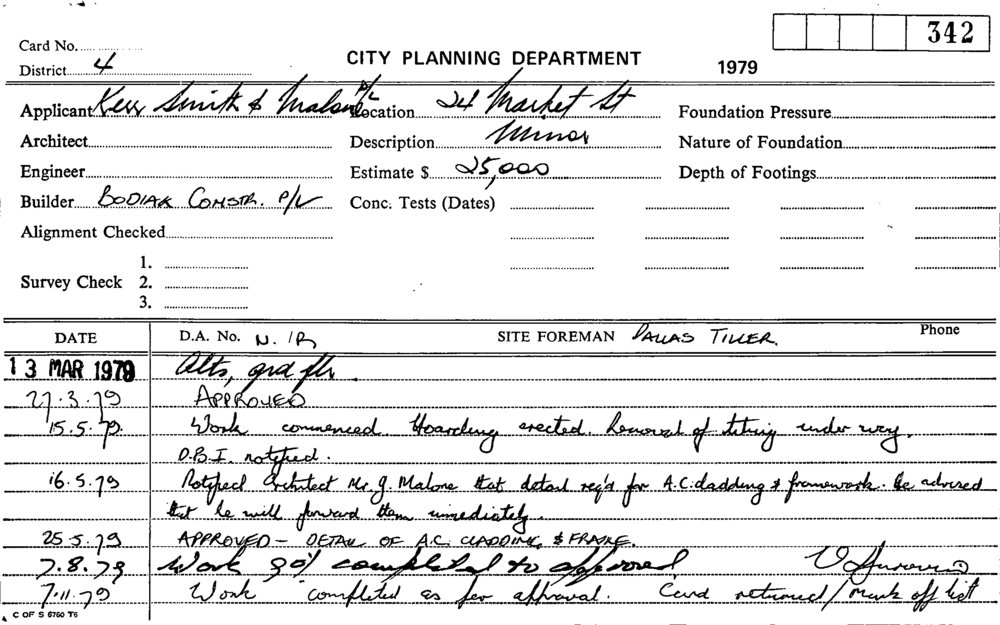 342
Card No.
CITY PLANNING DEPARTMENT
1979
District 4
Applicant Kerr Smith & Malone P/L Location 24 Market St Foundation Pressure
Architect Description Minor Nature of Foundation
Engineer Estimate $ 25,000 Depth of Footings
Builder BODIAK CONSTR. P/L Conc. Tests (Dates)
Alignment Checked
1.
Survey Check 2.
3.
DATE D.A. No. N./R SITE FOREMAN DALLAS TILLER. Phone
13 MAR 1979 Alts, grd flr.
27.3.79 APPROVED
15.5.79 Work commenced. Hoarding erected. Removal of tiling under way.
D.B.I. notified.
16.5.79 Notified Architect Mr. J. Malone that detail req'd for A.C. cladding & framework. He advised
that he will forward them immediately.
25.5.79 APPROVED - DETAIL OF A.C. CLADDING & FRAME.
7.8.79 Work 90% completed to approval
7.11.79 Work completed as per approval. Card returned/mark off list
C OF S 6760 T6